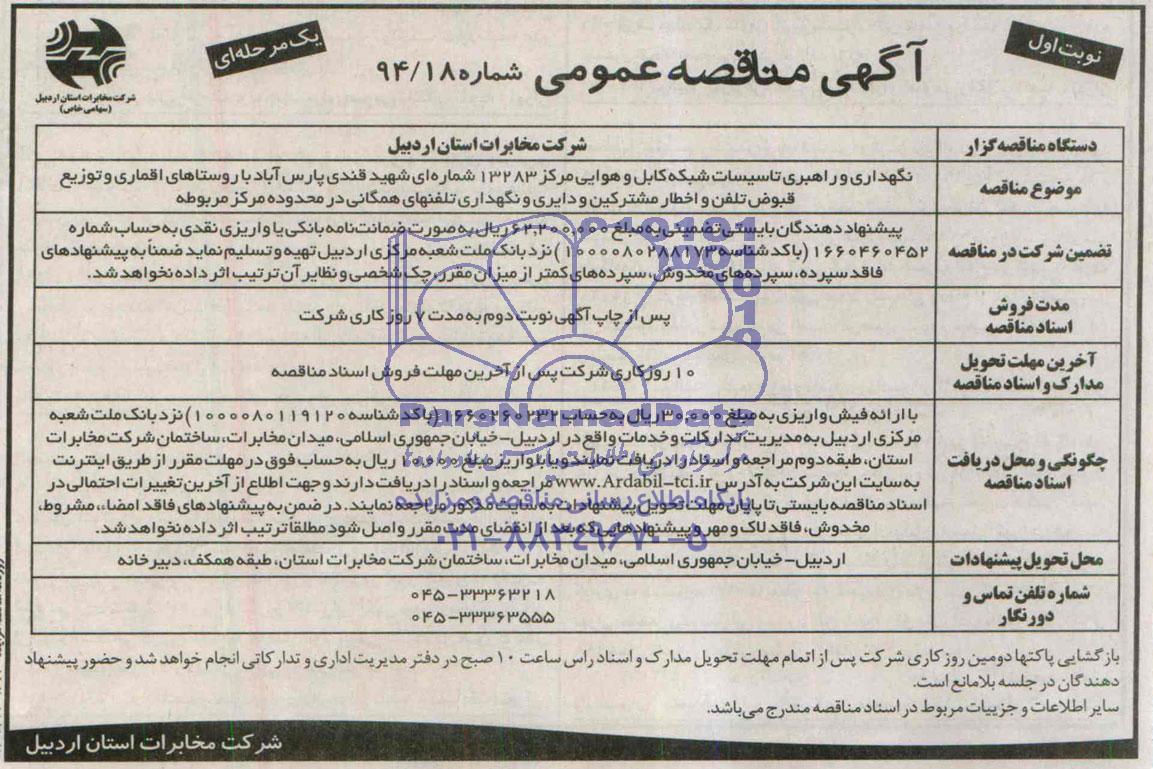 نوبت اول
آگهی مناقصه عمومی شماره ۹۴/۱۸
یک مرحله‌ای
شرکت مخابرات استان اردبیل
(سهامی خاص)
دستگاه مناقصه گزار
شرکت مخابرات استان اردبیل
موضوع مناقصه
نگهداری و راهبری تاسیسات شبکه کابل و هوایی مرکز ۱۳۲۸۳ شماره‌ای شهید قندی پارس آباد با روستاهای اقماری و توزیع
قبوض تلفن و اخطار مشترکین و دایری و نگهداری تلفنهای همگانی در محدوده مرکز مربوطه
تضمین شرکت در مناقصه
پیشنهاد دهندگان بایستی تضمینی به مبلغ ۶۲,۲۰۰,۰۰۰ ریال به صورت ضمانت‌نامه بانکی یا واریزی نقدی به حساب شماره
۱۶۶۰۴۶۰۴۵۲ (با کد شناسه ۱۰۰۰۰۰۸۰۲۸۸۱۷۳) نزد بانک ملت شعبه مرکزی اردبیل تهیه و تسلیم نماید ضمناً به پیشنهادهای
فاقد سپرده، سپرده‌های مخدوش، سپرده‌های کمتر از میزان مقرر، چک شخصی و نظایر آن ترتیب اثر داده نخواهد شد.
مدت فروش
اسناد مناقصه
پس از چاپ آگهی نوبت دوم به مدت ۷ روز کاری شرکت
آخرین مهلت تحویل
مدارک و اسناد مناقصه
۱۰ روز کاری شرکت پس از آخرین مهلت فروش اسناد مناقصه
چگونگی و محل دریافت
اسناد مناقصه
با ارائه فیش واریزی به مبلغ ۳۰,۰۰۰ ریال به حساب ۱۶۶۰۲۶۰۲۳۲ (با کد شناسه ۱۰۰۰۰۸۰۱۱۹۱۲۰) نزد بانک ملت شعبه
مرکزی اردبیل به مدیریت تدارکات و خدمات واقع در اردبیل - خیابان جمهوری اسلامی، میدان مخابرات، ساختمان شرکت مخابرات
استان، طبقه دوم مراجعه و اسناد را دریافت نمایند و یا با واریز مبلغ ۱۰,۰۰۰ ریال به حساب فوق در مهلت مقرر از طریق اینترنت
به سایت این شرکت به آدرس www.Ardabil-tci.ir مراجعه و اسناد را دریافت دارند و جهت اطلاع از آخرین تغییرات احتمالی در
اسناد مناقصه بایستی تا پایان مهلت تحویل پیشنهادات به سایت مذکور مراجعه نمایند. در ضمن به پیشنهادهای فاقد امضاء، مشروط،
مخدوش، فاقد لاک و مهر و پیشنهادهایی که بعد از انقضای مدت مقرر واصل شود مطلقاً ترتیب اثر داده نخواهد شد.
محل تحویل پیشنهادات
اردبیل - خیابان جمهوری اسلامی، میدان مخابرات، ساختمان شرکت مخابرات استان، طبقه همکف، دبیرخانه
شماره تلفن تماس و
دورنگار
۰۴۵-۳۳۳۶۳۲۱۸
۰۴۵-۳۳۳۶۳۵۵۵
بازگشایی پاکتها دومین روز کاری شرکت پس از اتمام مهلت تحویل مدارک و اسناد راس ساعت ۱۰ صبح در دفتر مدیریت اداری و تدارکاتی انجام خواهد شد و حضور پیشنهاد
دهندگان در جلسه بلامانع است.
سایر اطلاعات و جزییات مربوط در اسناد مناقصه مندرج می‌باشد.
شرکت مخابرات استان اردبیل
ParsNamadData
پایگاه اطلاع رسانی مناقصه و مزایده
۰۲۱-۸۸۳۴۹۶۷۰-۵